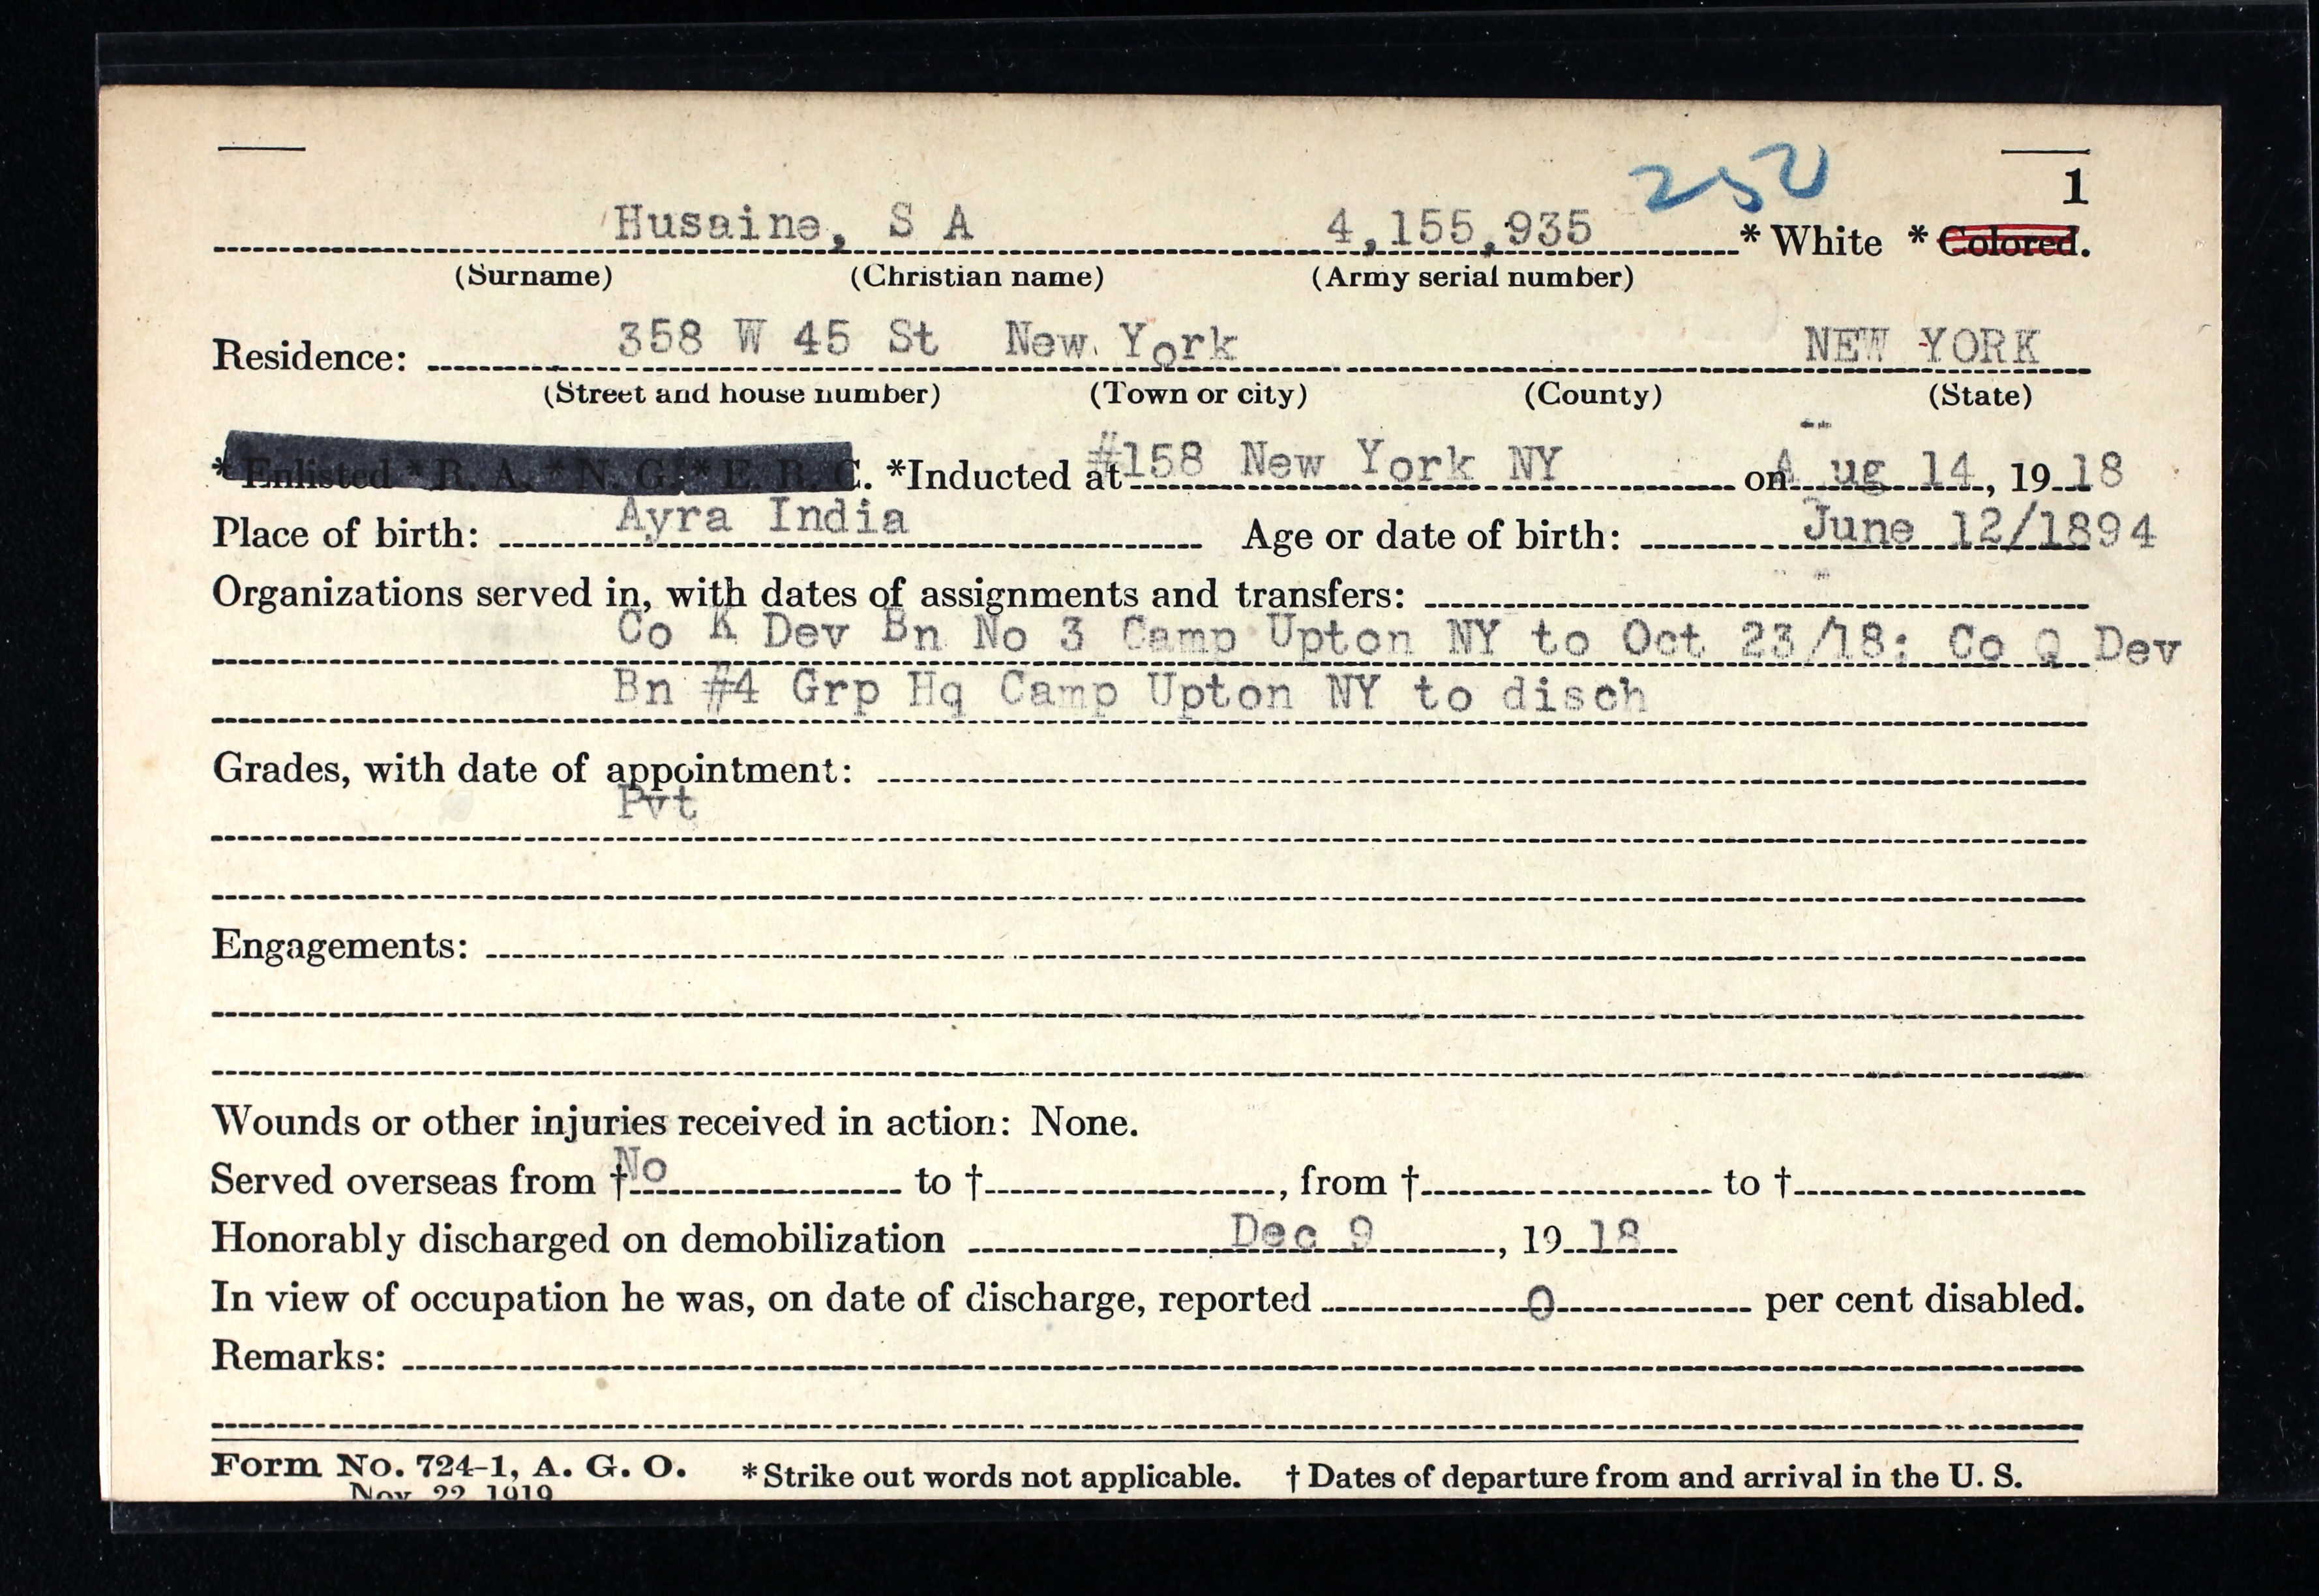 250
1
Husaine, S A 4,155,935 * White * Colored.
(Surname) (Christian name) (Army serial number)
Residence: 358 W 45 St New York NEW YORK
(Street and house number) (Town or city) (County) (State)
* Enlisted * R. A. * N. G. * E. R. C. *Inducted at #158 New York NY on Aug 14, 1918
Place of birth: Ayra India Age or date of birth: June 12/1894
Organizations served in, with dates of assignments and transfers:
Co K Dev Bn No 3 Camp Upton NY to Oct 23/18: Co Q Dev
Bn #4 Grp Hq Camp Upton NY to disch
Grades, with date of appointment:
Pvt
Engagements:
Wounds or other injuries received in action: None.
Served overseas from † No to †, from † to †
Honorably discharged on demobilization Dec 9, 1918
In view of occupation he was, on date of discharge, reported 0 per cent disabled.
Remarks:
Form No. 724-1, A. G. O. * Strike out words not applicable. † Dates of departure from and arrival in the U. S.
Nov. 22, 1919